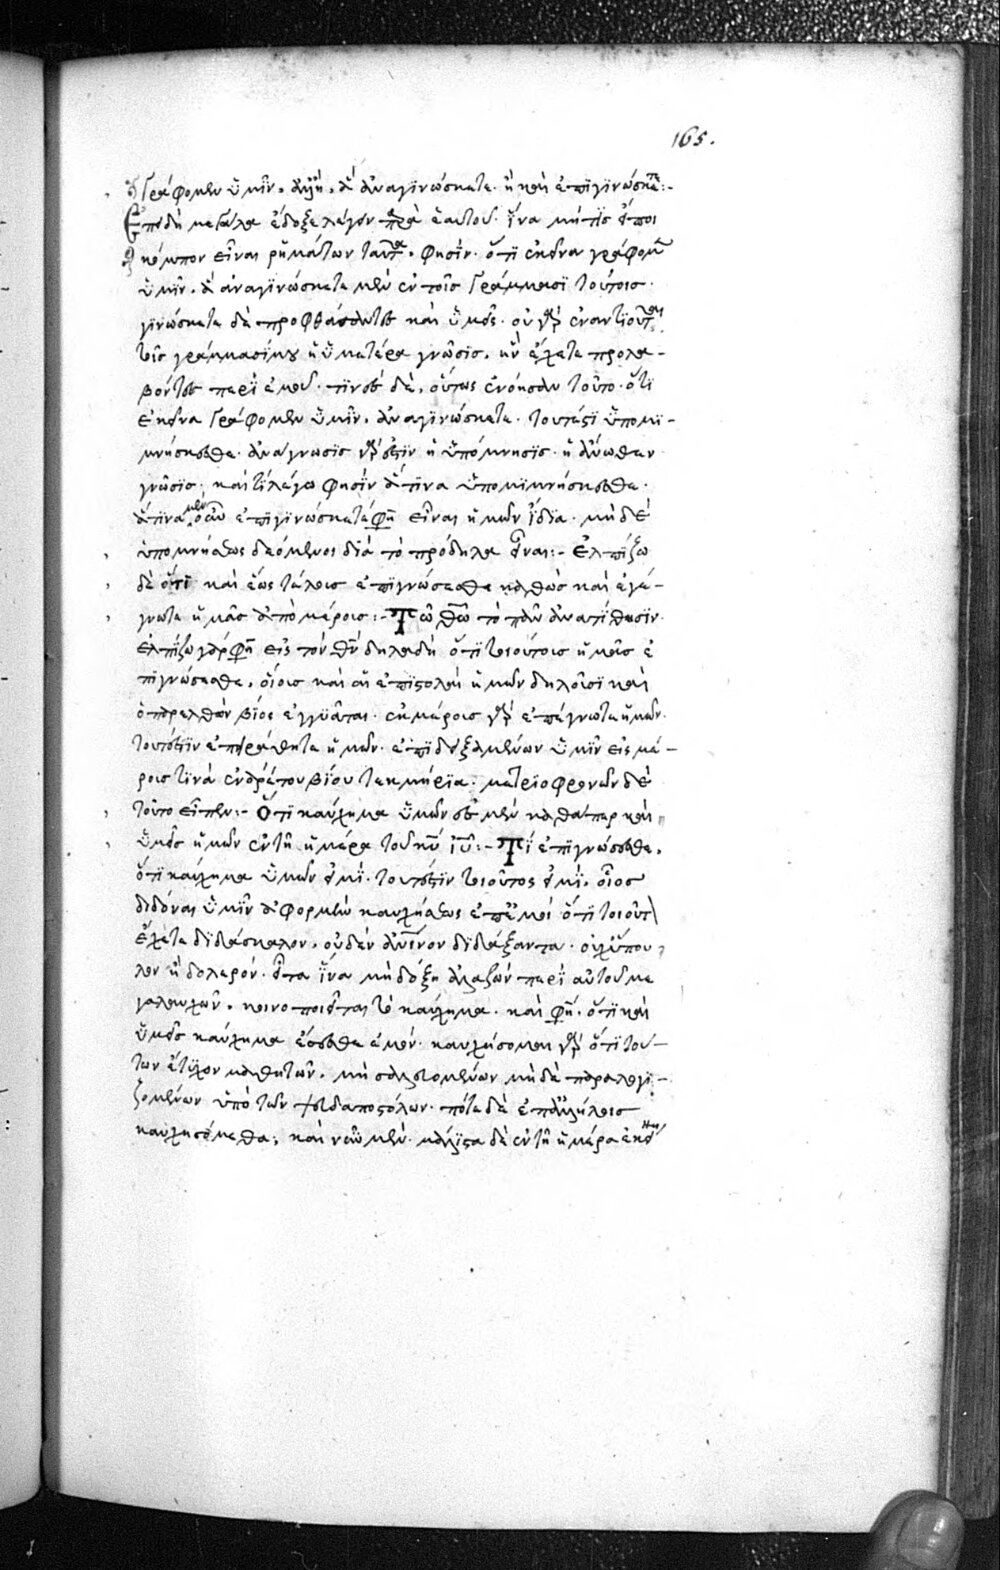 165.
γράφομεν ὑμῖν. ἀλλ' ἢ ἃ ἀναγινώσκετε. ἢ καὶ ἐπιγινώσκετε:-
Ἐπειδὴ μεγάλα ἔδοξε λέγειν περὶ ἑαυτοῦ. ἵνα μή τις εἴποι
κόμπον εἶναι ῥημάτων ταῦτα. φησίν. ὅτι ἐκεῖνα γράφομεν
ὑμῖν. ἃ ἀναγινώσκετε μὲν ἐν τοῖς γράμμασι τούτοις.
γινώσκετε δὲ προφθάσαντες καὶ ὑμεῖς. οὐ γὰρ ἐναντιοῦται
τοῖς γράμμασί μου ἡ ὑμετέρα γνῶσις. ἣν ἔχετε προλα-
βόντες περὶ ἐμοῦ. τινὲς δὲ, οὕτως ἐνόησαν τοῦτο. ὅτι
ἐκεῖνα γράφομεν ὑμῖν. ἀναγινώσκετε. τουτέστι ὑπομι-
μνήσκεσθε. ἀνάγνωσις γάρ ἐστιν ἡ ὑπόμνησις. ἡ ἄνωθεν
γνῶσις. καὶ τί λέγω φησὶν ἅτινα ὑπομιμνήσκεσθε.
ἅτινα μὲν οὖν ἐπιγινώσκετέ φησι εἶναι ἡμῶν ἴδια. μηδὲ
ὑπομνήσεως δεόμενοι διὰ τὸ πρόδηλα εἶναι:- Ἐλπίζω
δὲ ὅτι καὶ ἕως τέλους ἐπιγνώσεσθε καθὼς καὶ ἐπέ-
γνωτε ἡμᾶς ἀπὸ μέρους:- Τῷ θεῷ τὸ πᾶν ἀνατίθησιν.
ἐλπίζω γάρ φησι εἰς τὸν θν δηλαδὴ ὅτι τοιούτους ἡμᾶς ἐ
πιγνώσεσθε, οἵους καὶ αἱ ἐπιστολαὶ ἡμῶν δηλοῦσι καὶ
ὁ παρελθὼν βίος ἐγγυᾶται. ἐκ μέρους γὰρ ἐπέγνωτε ἡμῶν.
τουτέστιν ἐπειράθητε ἡμῶν. ἐπιδειξαμένων ὑμῖν εἰς μέ-
ρους τινὰ ἐναρέτου βίου τεκμήρια. μετριοφρονῶν δὲ
τοῦτο εἶπεν:- Ὅτι καύχημα ὑμῶν ἐσμὲν καθάπερ καὶ
ὑμεῖς ἡμῶν ἐν τῇ ἡμέρα τοῦ κυ ιυ:- Τί ἐπιγνώσεσθε,
ὅτι καύχημα ὑμῶν εἰμί. τουτέστιν τοιοῦτος εἰμί. οἷος
διδόναι ὑμῖν ἀφορμὴν καυχήσεως ἐπ' ἐμοί ὅτι τοιοῦτ
ἔχετε διδάσκαλον. οὐδὲν ἀνινον διδάξαντα. οὐχ ὕπου
λον ἢ δολερόν. εἶτα ἵνα μὴ δόξῃ ἀλαζὼν περὶ αὐτοῦ με
γαλαυχῶν. κοινοποιεῖται τὸ καύχημα. καὶ φησι. ὅτι καὶ
ὑμεῖς καύχημα ἔσεσθε ἐμόν. καυχήσομαι γὰρ ὅτι τοιού-
των ἔτυχον μαθητῶν. μὴ σαλευομένων μηδὲ παραλογι-
ζομένων ὑπὸ τῶν ψευδαποστόλων. πότε δὲ ἐπ' ἀλλήλοις
καυχησόμεθα; καὶ νῦν μὲν. μάλιστα δὲ ἐν τῇ ἡμέρα ἐκείνῃ